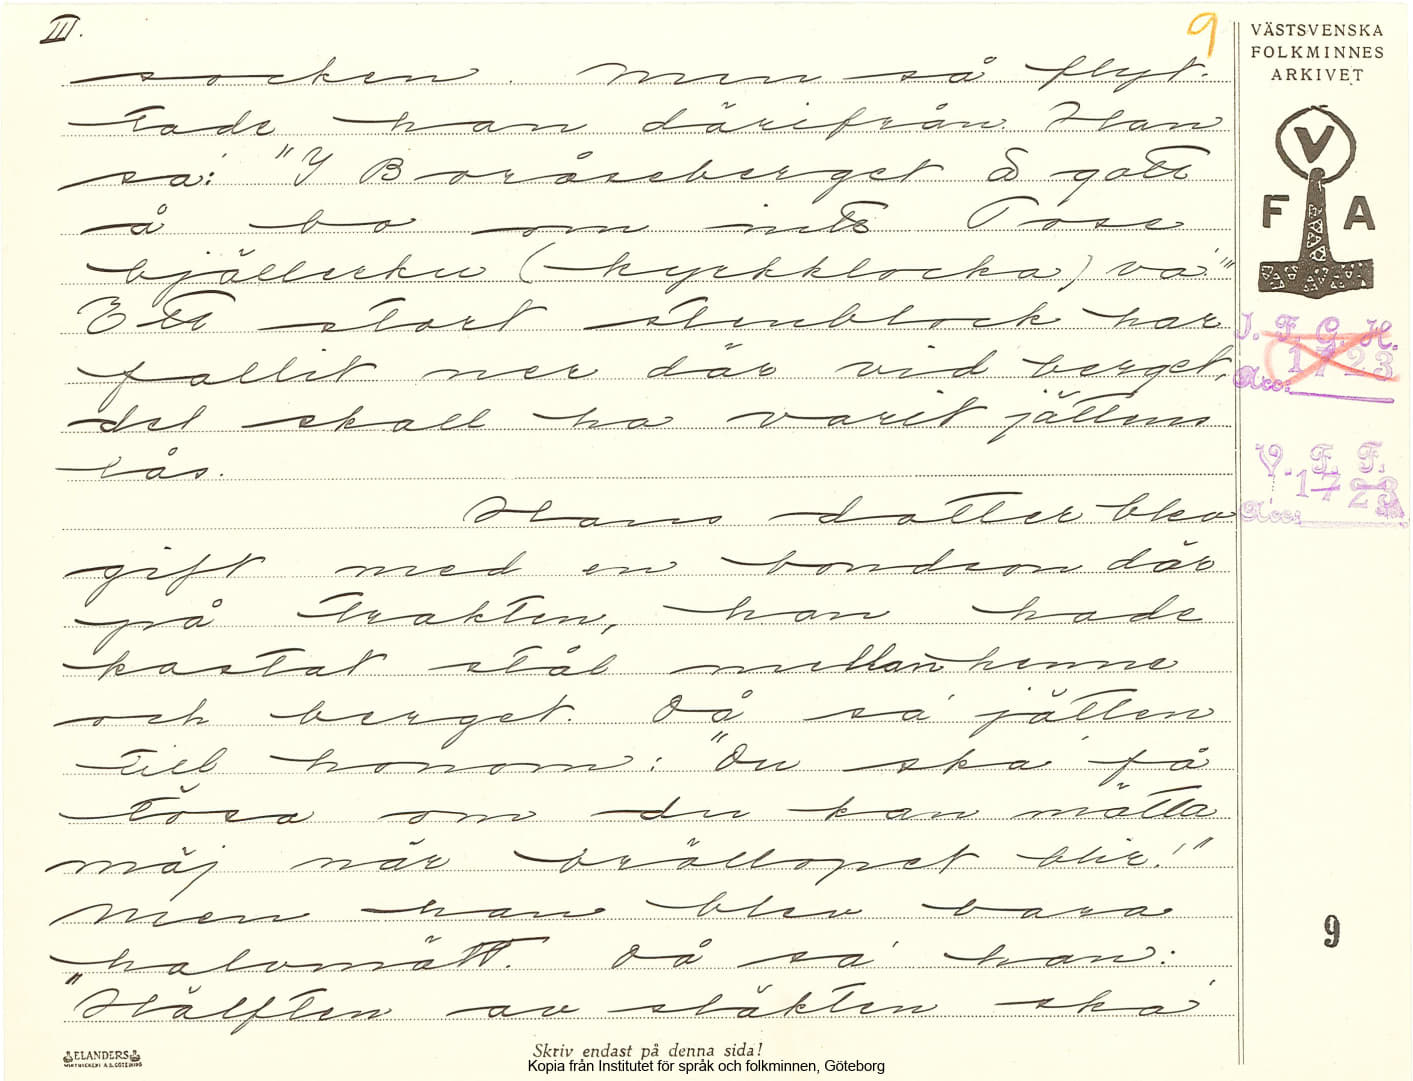 III.
9
socken. Men så flyt-
tade han därifrån. Han
sa: "I Boråseberget ä gott
å bo om inte Tose
bjällerku (kyrkklocka) va'"
Ett stort stenblock har
fallit ner där vid berget,
det skall ha varit jättens
lås.
Hans dotter blev
gift med en bondson där
på trakten, han hade
kastat stål mellan henne
och berget. Då sa' jätten
till honom: "Du ska' få
tösa om du kan mätta
mäj när bröllopet blir!"
Men han blev bara
halvmätt. Då sa' han:
"Hälften av släkten ska'
VÄSTSVENSKA
FOLKMINNES
ARKIVET
V
F A
I. F. G. H.
1723
Acc:
V. F. F.
1723
Acc:
9
ELANDERS
Skriv endast på denna sida!
Kopia från Institutet för språk och folkminnen, Göteborg